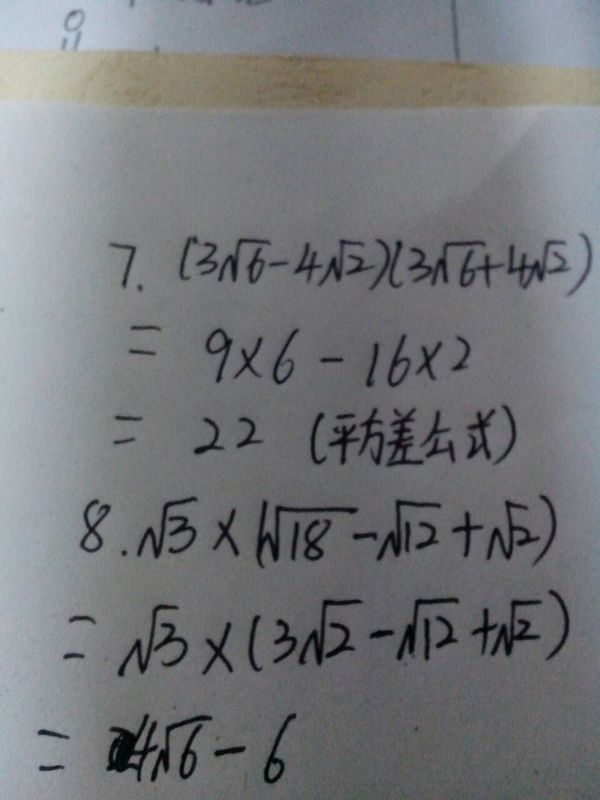 7. (3√6-4√2)(3√6+4√2)
= 9×6-16×2
= 22 (平方差公式)
8. √3×(√18-√12+√2)
= √3×(3√2-√12+√2)
= 4√6-6